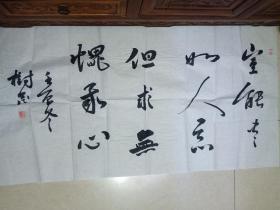 豈能尽
如人意
但求無
愧我心
冬
樹